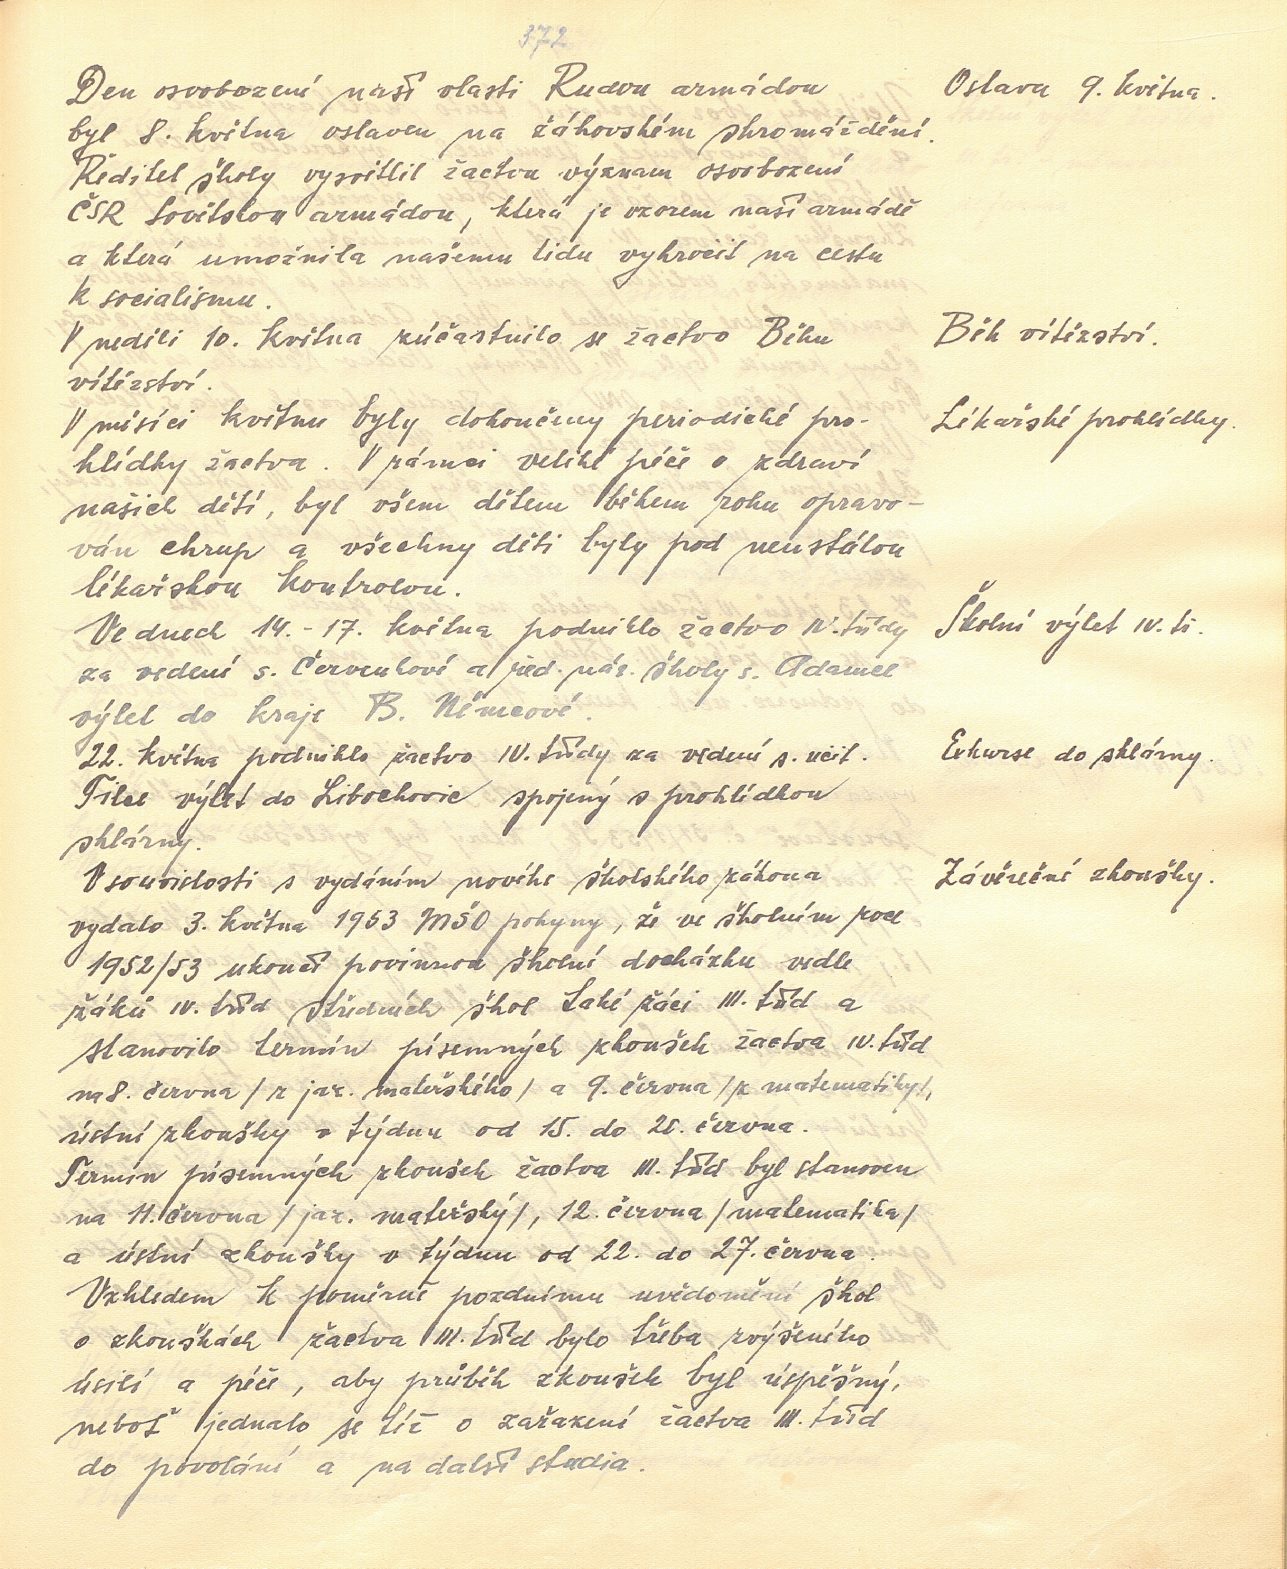 372
Den osvobození naší vlasti Rudou armádou
Oslava 9. května.
byl 8. května oslaven na žákovském shromáždění.
Ředitel školy vysvětlil žactvu význam osvobození
ČSR Sovětskou armádou, která je vzorem naší armádě
a která umožnila našemu lidu vykročit na cestu
k socialismu.
V neděli 10. května zúčastnilo se žactvo Běhu
Běh vítězství.
vítězství.
V měsíci květnu byly dokončeny periodické pro-
Lékařské prohlídky.
hlídky žactva. V rámci veliké péče o zdraví
našich dětí, byl všem dětem během roku opravo-
ván chrup a všechny děti byly pod neustálou
lékařskou kontrolou.
Ve dnech 14. - 17. května podniklo žactvo IV. třídy
Školní výlet IV. tř.
za vedení s. Červenkové a řed. nár. školy s. Adamce
výlet do kraje B. Němcové.
22. května podniklo žactvo IV. třídy za vedení s. učit.
Exkurse do sklárny.
Tilce výlet do Libochovic spojený s prohlídkou
sklárny.
V souvislosti s vydáním nového školského zákona
Závěrečné zkoušky.
vydalo 3. května 1953 MŠO pokyny, že ve školním roce
1952/53 ukončí povinnou školní docházku vedle
žáků IV. tříd středních škol také žáci III. tříd a
stanovilo termín písemných zkoušek žactva IV. tříd
na 8. června /z jaz. mateřského/ a 9. června /z matematiky/,
ústní zkoušky v týdnu od 15. do 20. června.
Termín písemných zkoušek žactva III. tříd byl stanoven
na 11. června /jaz. mateřský/, 12. června /matematika/
a ústní zkoušky v týdnu od 22. do 27. června.
Vzhledem k poměrně pozdnímu uvědomění škol
o zkouškách žactva III. tříd bylo třeba zvýšeného
úsilí a péče, aby průběh zkoušek byl úspěšný,
neboť jednalo se též o zařazení žactva III. tříd
do povolání a na další studia.